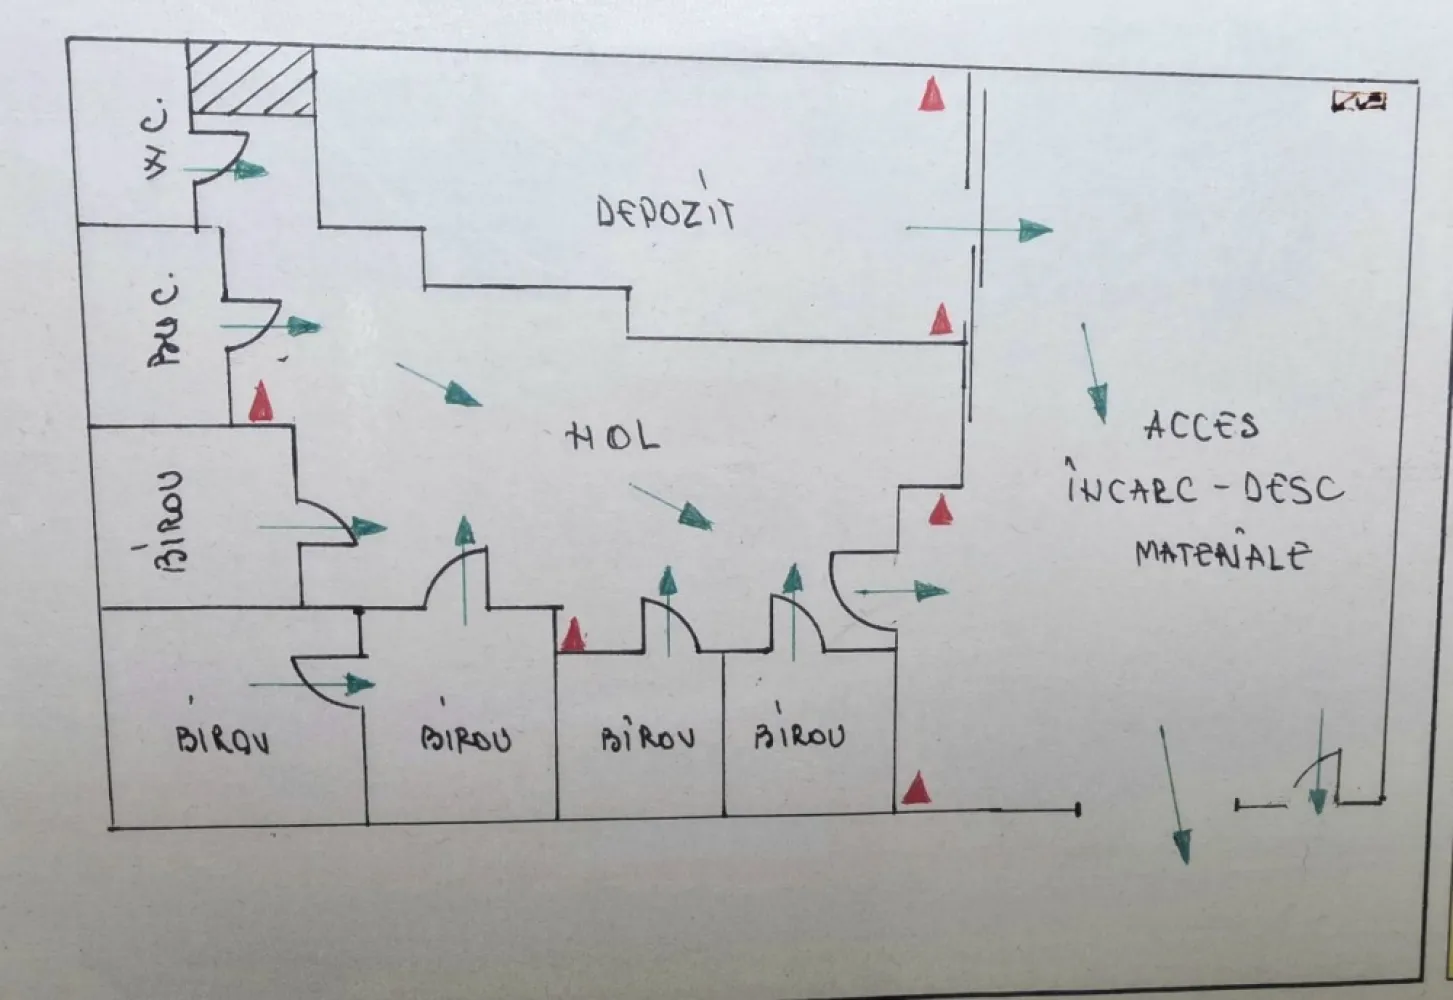 W C.
DEPOZIT
BUC.
HOL
ACCES
ÎNCARC - DESC
MATERIALE
BIROU
BIROU
BIROU
BIROU
BIROU